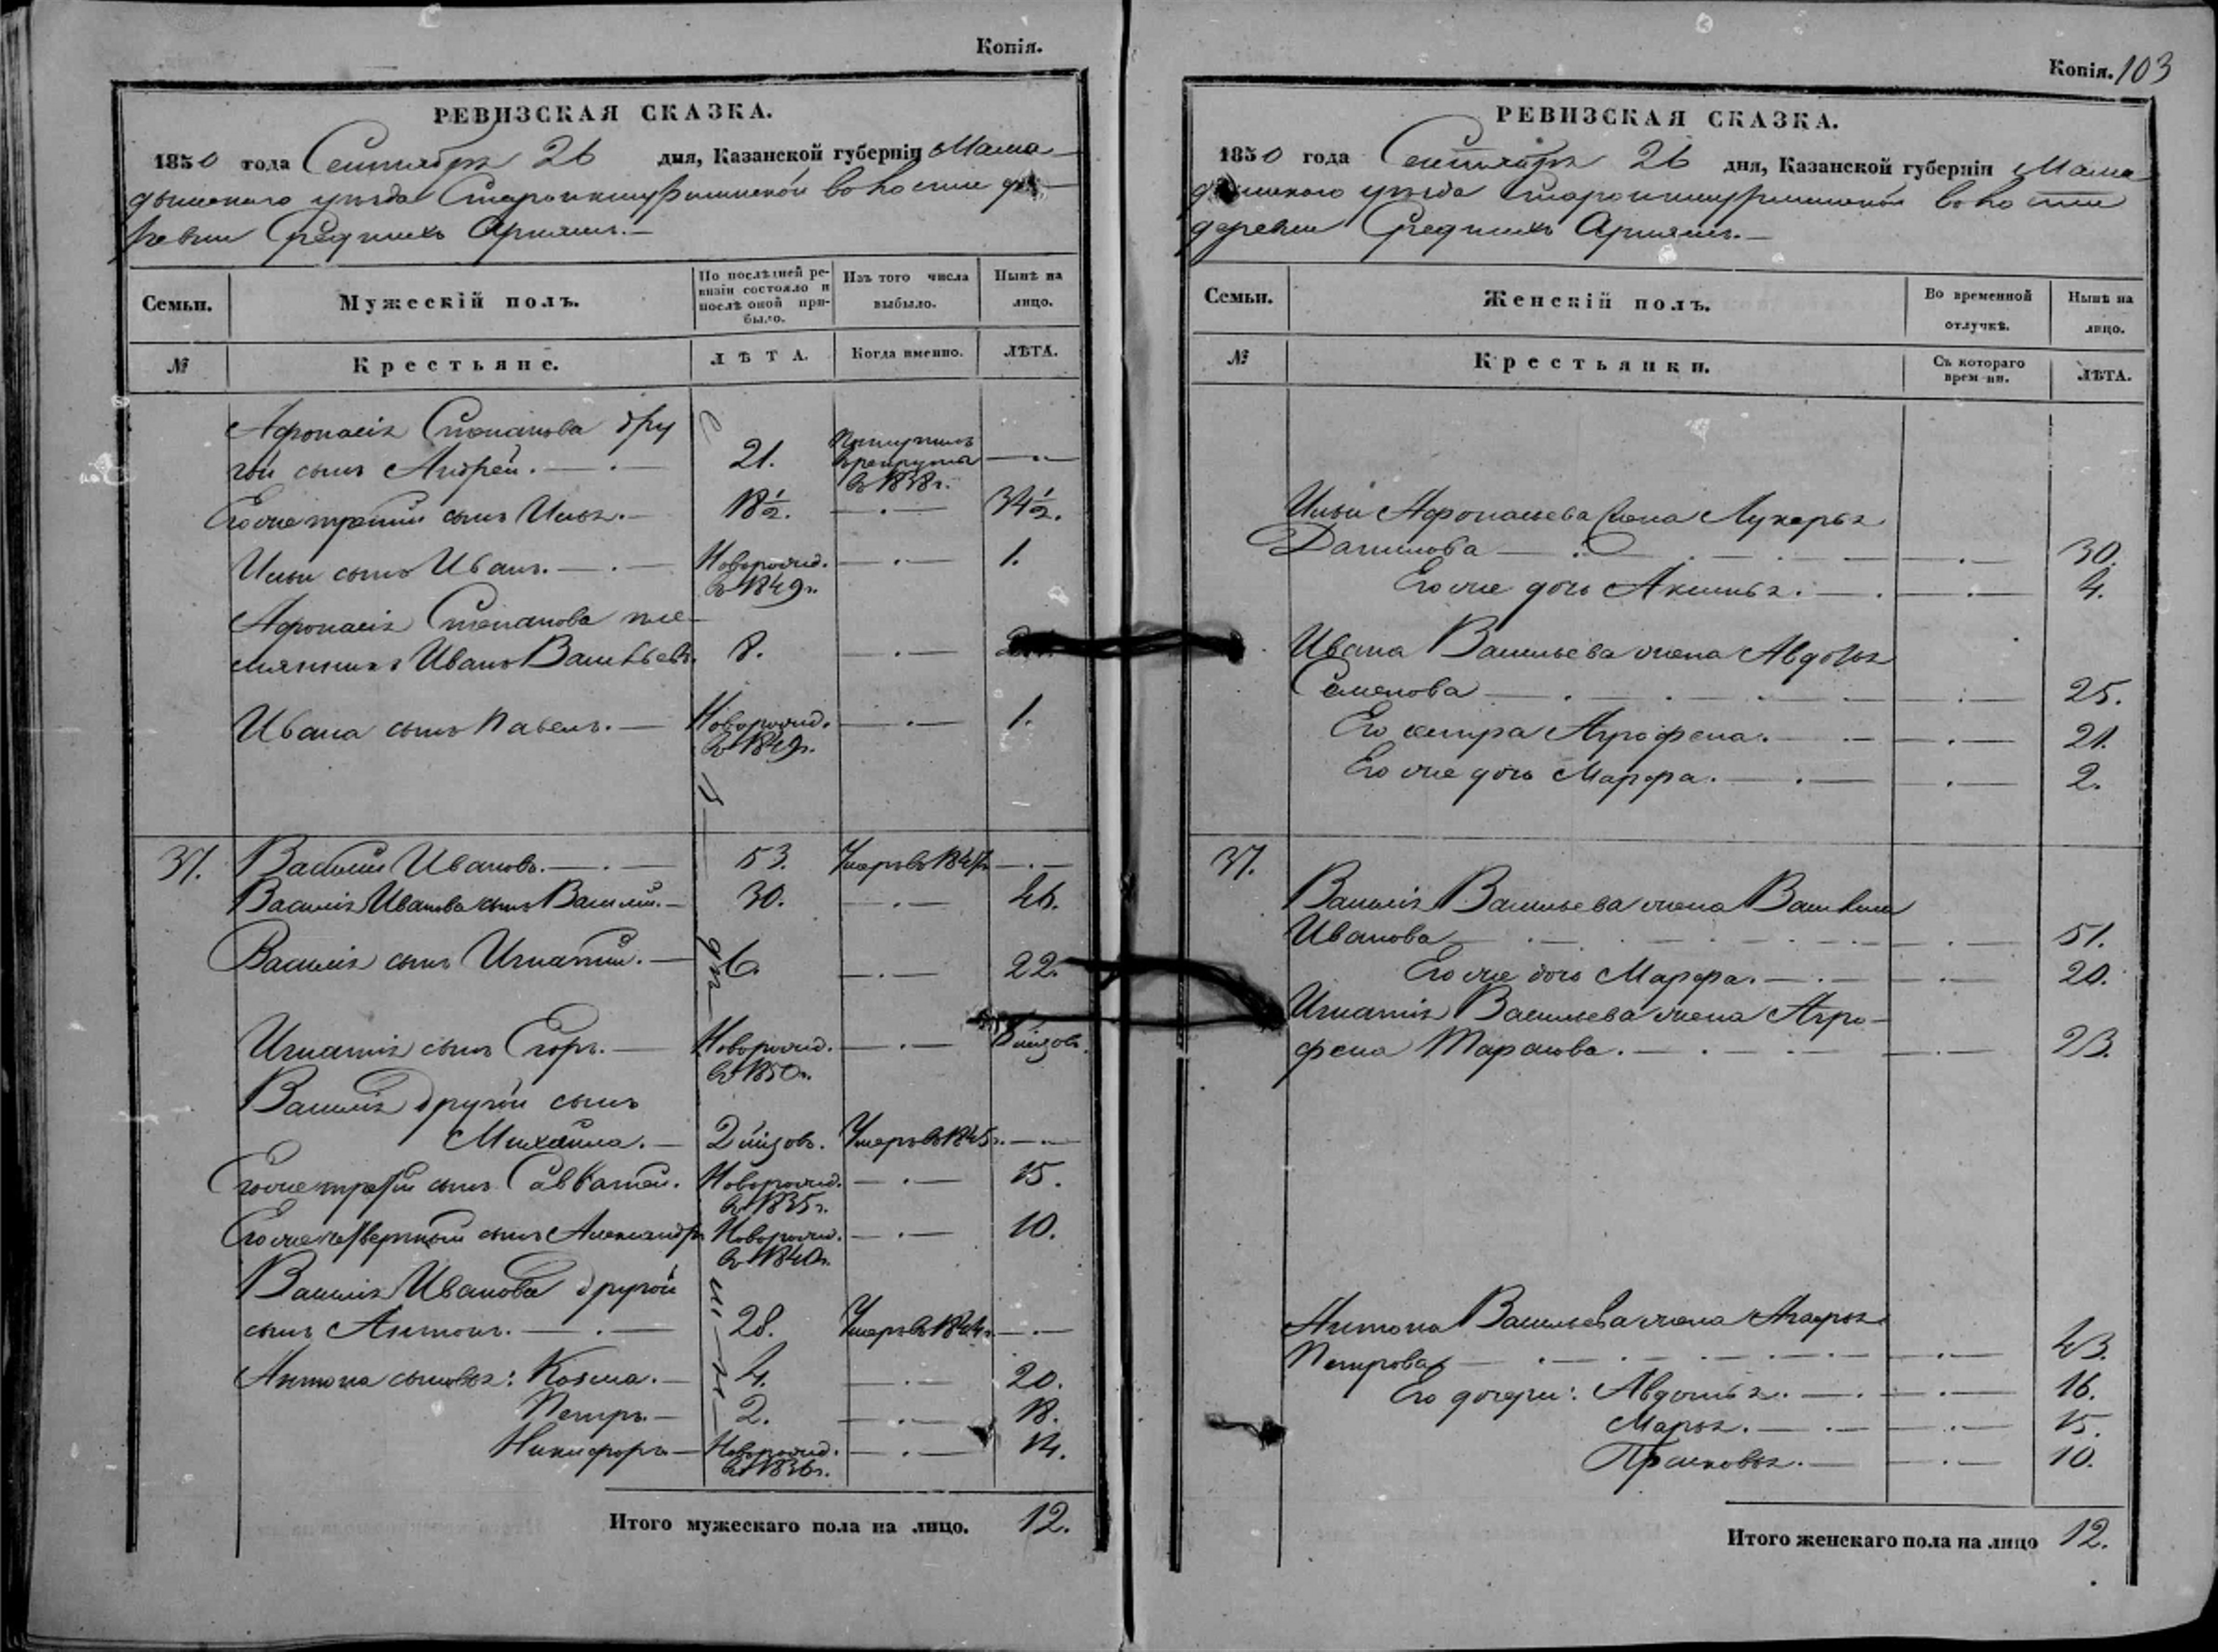 Копія.
РЕВИЗСКАЯ СКАЗКА.
1850 года Сентября 26 дня, Казанской губерніи Мама-
дышскаго уѣзда волости де-
ревни Среднихъ Арняшъ.—
Семьи.
Мужескій полъ.
По послѣдней ре-
визіи состояло и
послѣ оной при-
было.
Изъ того числа
выбыло.
Нынѣ на
лицо.
№
Крестьяне.
ЛѢТА.
Когда именно.
ЛѢТА.
Афонасія Степанова дру
гой сынъ Андрей. 21. Поступилъ
в рекруты
в 1838 г.
Его же третій сынъ Илья. 18½. 34½.
Ильи сынъ Иванъ. Новорожд. 1.
в 1849 г.
Афонасія Степанова пле-
мянникъ Иванъ Васильевъ. 8.
Ивана сынъ Павелъ. Новорожд. 1.
в 1849 г.
37. Василій Ивановъ. 53. Умеръ в
Василія Иванова сынъ Василій. 30. 46.
Василія сынъ Игнатій. 6. 22.
Игнатія сынъ Егоръ. Новорожд.
в 1850 г.
Василія другой сынъ
Михайла. Умеръ в 1845 г.
Его же третій сынъ Савватей. Новорожд. 15.
в 1835 г.
Его же четвертый сынъ Александръ Новорожд. 10.
в 1840 г.
Василія Иванова другой
сынъ Антонъ. 28. Умеръ в 1844 г.
Антона сыновья: Козма. 4. 20.
Петръ. 2. 18.
Никифоръ Новорожд. 14.
в 1836 г.
Итого мужескаго пола на лицо. 12.
Копія. 103
РЕВИЗСКАЯ СКАЗКА.
1850 года Сентября 26 дня, Казанской губерніи Мама
дышскаго уѣзда волости
деревни Среднихъ Арняшъ.—
Семьи.
Женскій полъ.
Во временной
отлучкѣ.
Нынѣ на
лицо.
№
Крестьянки.
Съ котораго
времени.
ЛѢТА.
Ильи Афонасьева жена Лукерья
Данилова 30.
Его же дочь Аксинья. 4.
Ивана Васильева жена Авдотья
Семенова 25.
Его сестра Агрофена. 21.
Его же дочь Марфа. 2.
37.
Василія Васильева жена Василиса
Иванова 51.
Его же дочь Марфа. 20.
Игнатія Васильева жена Агро-
фена Тарасова. 23.
Антона Васильева жена Агафья
Петрова 43.
Его дочери: Авдотья. 16.
Марья. 15.
Прасковья. 10.
Итого женскаго пола на лицо 12.